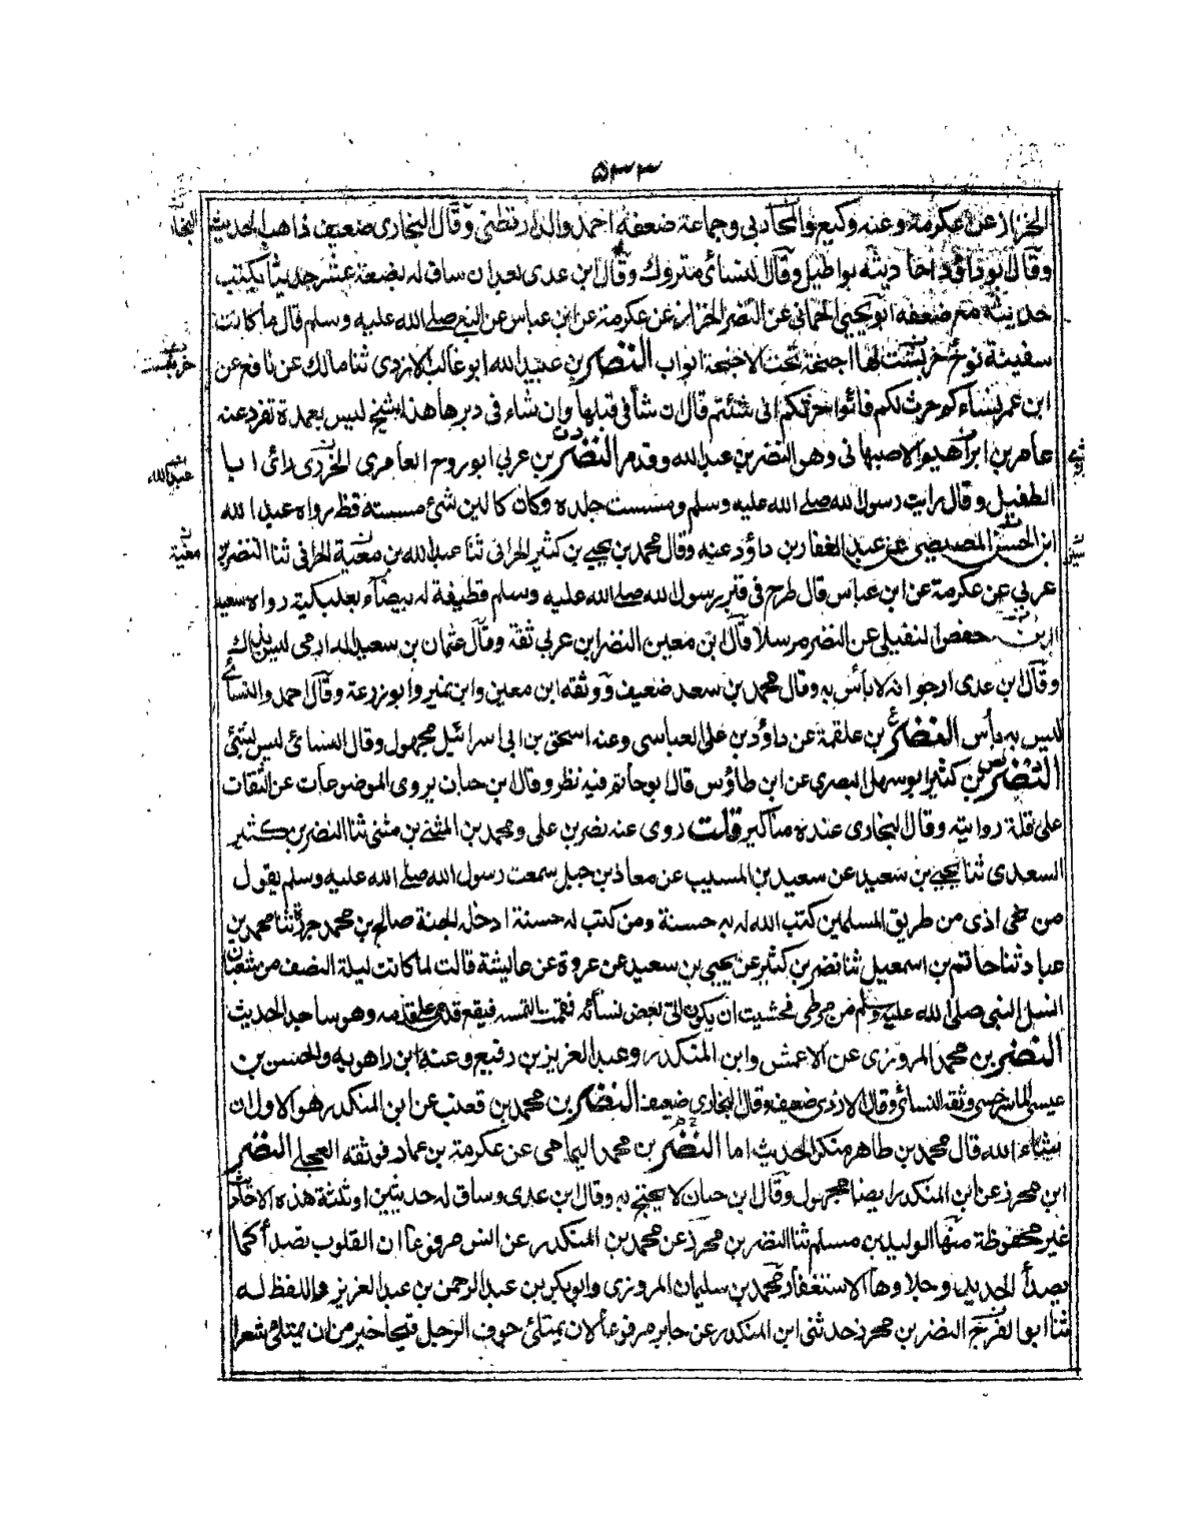 ٥٣٣
الخزاز عن عكرمة وعنه وكيع والمحاربي وجماعة ضعفه احمد والدارقطنى وقال البخارى ضعيف ذاهب الحديث
وقال ابو داؤد احاديثه بواطيل وقال النسائى متروك وقال ابن عدى بعد ان ساق له بضعة عشر حديثا يكتب
حديثه مع ضعفه ابو يحيى الحمانى عن النضر الخزاز عن عكرمة عن ابن عباس عن النبى صلى الله عليه وسلم قال ما كانت
سفينة نوح لها اجنحة تحت الاجنحة ابواب النضر بن عبيد الله ابو غالب الازدى ثنا مالك عن نافع عن
ابن عمر نساءكم حرث لكم فاتوا حرثكم انى شئتم قال ان شأ فى قبلها وان شاء فى دبرها هذا الشيخ ليس بعمدة تفرد عنه
عامر بن ابراهيم الاصبهانى وهو النضر بن عبد الله وقد مر النضر بن عربي ابو روح العامرى الجزرى رائ ابا
الطفيل وقال رايت رسول الله صلى الله عليه وسلم ومسست جلده وكان كالين شئ مسسته قط رواه عبد الله
ابن الحسين المصيصى عن عبد الغفار بن داؤد عنه وقال محمد بن يحيى بن كثير الحرانى ثنا عبد الله بن مغيرة الحرانى ثنا النضر بن
عربي عن عكرمة عن ابن عباس قال طرح فى قبر رسول الله صلى الله عليه وسلم قطيفة له بيضآء بعلبكية رواه سعيد
حفص النفيلى عن النضر مرسلا قال ابن معين النضر ابن عربي ثقة وقال عثمان بن سعيد الدارمى ليس بذاك
وقال ابن عدى ارجو انه لا بأس به وقال محمد بن سعد ضعيف ووثقه ابن معين وابن نمير وابو زرعة وقال احمد والنسائى
ليس به بأس النضر بن علقمة عن داؤد بن على العباسى وعنه اسحق بن ابى اسرائيل مجهول وقال النسائى ليس بشئ
النضر بن كثير ابو سهل البصرى عن ابن طاؤس قال ابو حاتم فيه نظر وقال ابن حبان يروى الموضوعات عن الثقات
على قلة روايته وقال البخارى عنده مناكير قلت روى عنه نصر بن على ومحمد بن المثنى بن مثنى ثنا النضر بن كثير
السعدى ثنا يحيى بن سعيد عن سعيد بن المسيب عن معاذ بن جبل سمعت رسول الله صلى الله عليه وسلم يقول
من نحى اذى من طريق المسلمين كتب الله له به حسنة ومن كتب له حسنة ادخله الجنة صالح بن محمد جزرة ثنا محمد بن
عباد ثنا حاتم بن اسمعيل ثنا نضر بن كثير عن يحيى بن سعيد عن عروة عن عايشة قالت لما كانت ليلة النصف من شعبان
انسل النبى صلى الله عليه وسلم من مرطى فخشيت ان يكون اتى بعض نسائه فقمت التمسه فيقع قدمى على قدمه وهو ساجد الحديث
النضر بن محمد المروزى عن الاعمش وابن المنكدر وعبد العزيز بن رفيع وعنه ابن راهويه والحسن بن
عيسى الماسرجسى وثقه النسائى وقال الازدى ضعيف وقال البخارى ضعيف النضر بن محمد بن قعنب عن ابن المنكدر هو الاول ان
شاء الله قال محمد بن طاهر منكر الحديث اما النضر بن محمد اليمامى عن عكرمة بن عمار فوثقه العجلى النضر
ابن محرز عن ابن المنكدر ايضا مجهول وقال ابن حبان لا يحتج به وقال ابن عدى وساق له حديثين او ثلثة هذه الاحاديث
غير محفوظة منها الوليد بن مسلم ثنا النضر بن محرز عن محمد بن المنكدر عن انس مرفوعا ان القلوب تصدأ كما
يصدأ الحديد وجلاوها الاستغفار محمد بن سليمان المروزى وابو بكر بن عبد الرحمن بن عبد العزيز واللفظ له
ثنا ابو الفرج النضر بن محرز حدثنى ابن المنكدر عن جابر مرفوعا لان يمتلئ جوف الرجل قيحا خير من ان يمتلئ شعرا